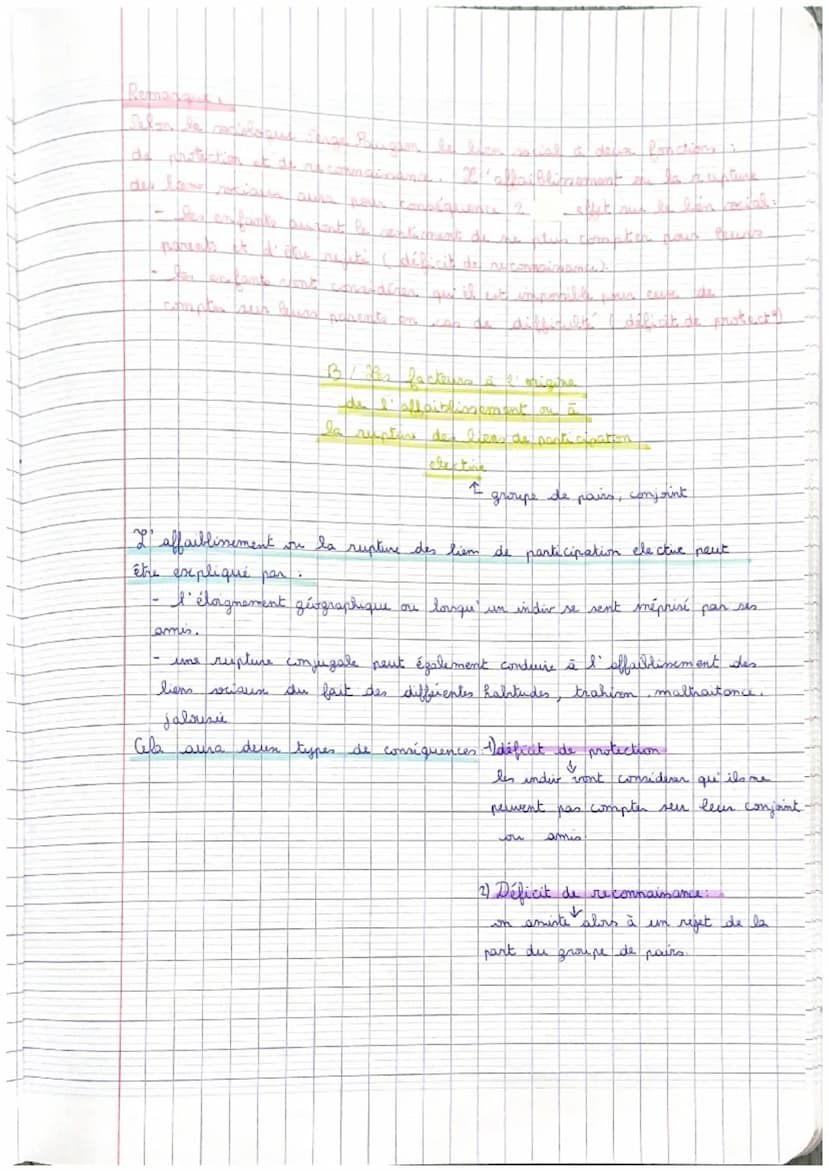 Remarque :
Selon le sociologue Serge Paugam le lien social à deux fonctions :
de protection et de reconnaissance. L'affaiblissement ou la rupture
des liens sociaux aura pour conséquence 2 effet sur le lien social :
- Les enfants auront le sentiment de ne plus compter pour leurs
parents et d'être rejeté (déficit de reconnaissance).
- Les enfants vont considérer qu'il est impossible pour eux de
compter sur leurs parents en cas de difficulté (déficit de protect°)
B / Les facteurs à l'origine
de l'affaiblissement ou à
la rupture des liens de participation
elective
↑ groupe de pairs, conjoint
L'affaiblissement ou la rupture des lien de participation elective peut
être expliqué par :
- l'éloignement géographique ou lorsqu'un indiv se sent méprisé par ses
amis.
- une rupture conjugale peut également conduire à l'affaiblissement des
liens sociaux du fait des différentes habitudes, trahison, maltraitance,
jalousie
Cela aura deux types de conséquences 1) déficit de protection
↓
les indiv vont considerer qu'ils ne
peuvent pas compter sur leur conjoint
ou amis.
2) Déficit de reconnaissance :
↓
on assiste alors à un rejet de la
part du groupe de pairs.